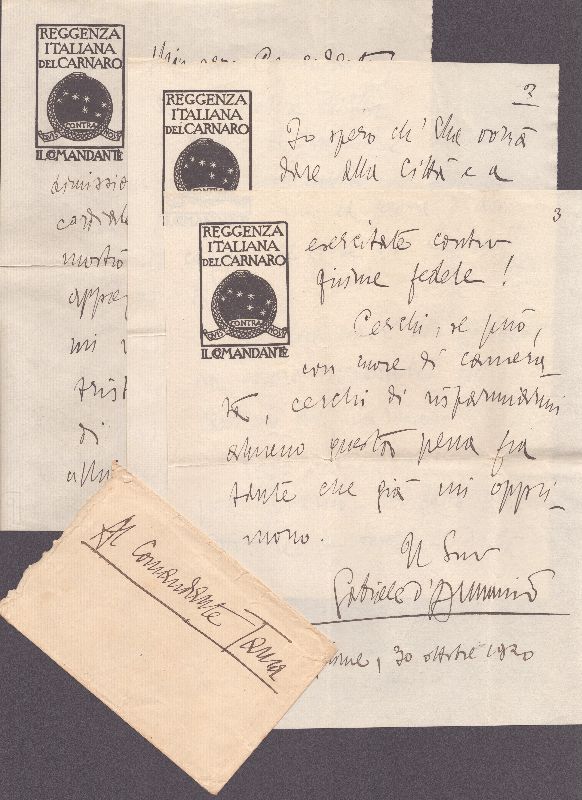 REGGENZA
ITALIANA
DEL CARNARO
CONTRA
IL COMANDANTE
mostrò
mi
di
REGGENZA
ITALIANA
DEL CARNARO
2
Io spero ch' Ella vorrà
dare alla Città e a
REGGENZA
ITALIANA
DEL CARNARO
CONTRA
IL COMANDANTE
3
esercitate contro
fiume fedele!
Cerchi, se può,
con cuore di camera
ta, cerchi di risparmiarmi
almeno questa pena fra
tante che già mi oppri-
mono.
Il Suo
Gabriele d'Annunzio
30 ottobre 1920
Al Comandante